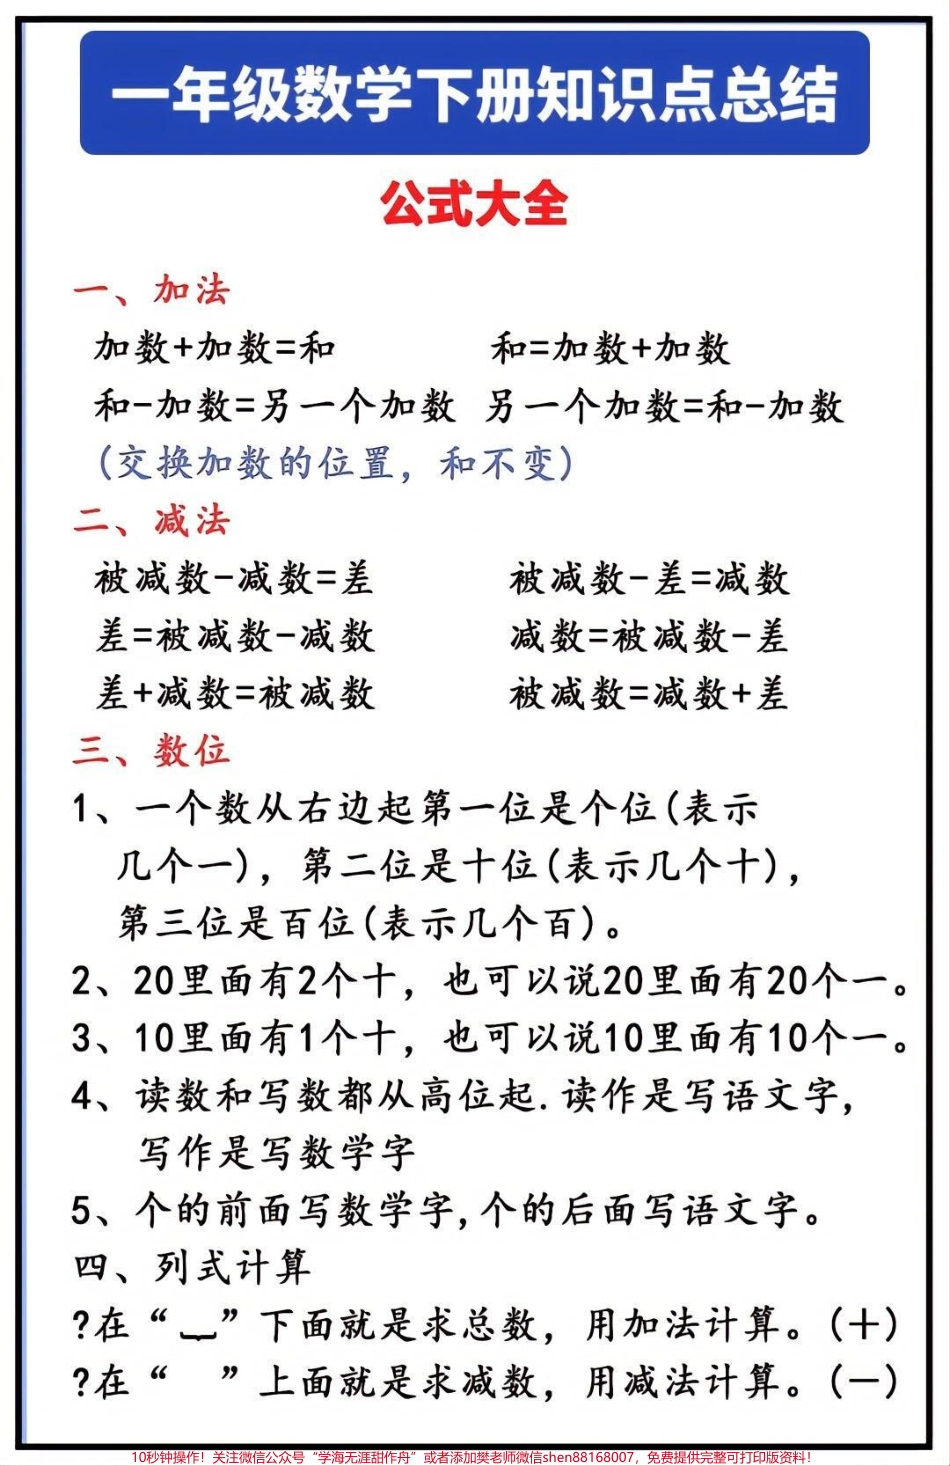 一年级数学下册知识点总结
公式大全
一、加法
加数+加数=和 和=加数+加数
和-加数=另一个加数 另一个加数=和-加数
(交换加数的位置，和不变)
二、减法
被减数-减数=差 被减数-差=减数
差=被减数-减数 减数=被减数-差
差+减数=被减数 被减数=减数+差
三、数位
1、一个数从右边起第一位是个位(表示
几个一)，第二位是十位(表示几个十)，
第三位是百位(表示几个百)。
2、20里面有2个十，也可以说20里面有20个一。
3、10里面有1个十，也可以说10里面有10个一。
4、读数和写数都从高位起.读作是写语文字，
写作是写数学字
5、个的前面写数学字,个的后面写语文字。
四、列式计算
?在“﹏”下面就是求总数，用加法计算。(＋)
?在“ ”上面就是求减数，用减法计算。(－)
10秒钟操作！关注微信公众号“学海无涯甜作舟”或者添加樊老师微信shen88168007，免费提供完整可打印版资料！